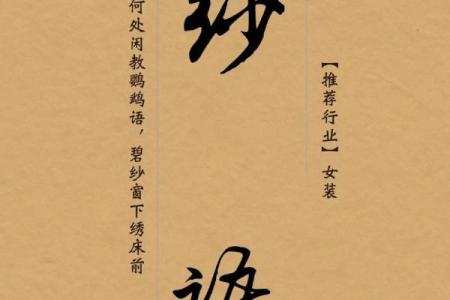 【推荐行业】女装
纱
语
何处闲教鹦鹉语，碧纱窗下绣床前